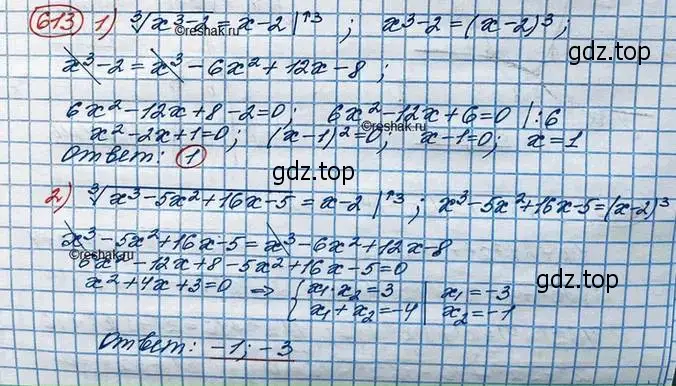 613 1) ∛(x³-2) = x-2 |↑3 ; x³-2 = (x-2)³ ;
©reshak.ru
gdz.top
x³-2 = x³-6x²+12x-8 ;
6x²-12x+8-2=0 ; 6x²-12x+6=0 |:6
©reshak.ru
x²-2x+1=0 ; (x-1)²=0 ; x-1=0 ; x=1
Ответ: 1
gdz.top
2) ∛(x³-5x²+16x-5) = x-2 |↑3 ; x³-5x²+16x-5=(x-2)³
x³-5x²+16x-5 = x³-6x²+12x-8
©reshak.ru
6x²-12x+8-5x²+16x-5=0
gdz.top
x²+4x+3=0 ⇒ { x₁·x₂=3 | x₁=-3
x₁+x₂=-4 | x₂=-1
Ответ: -1; -3